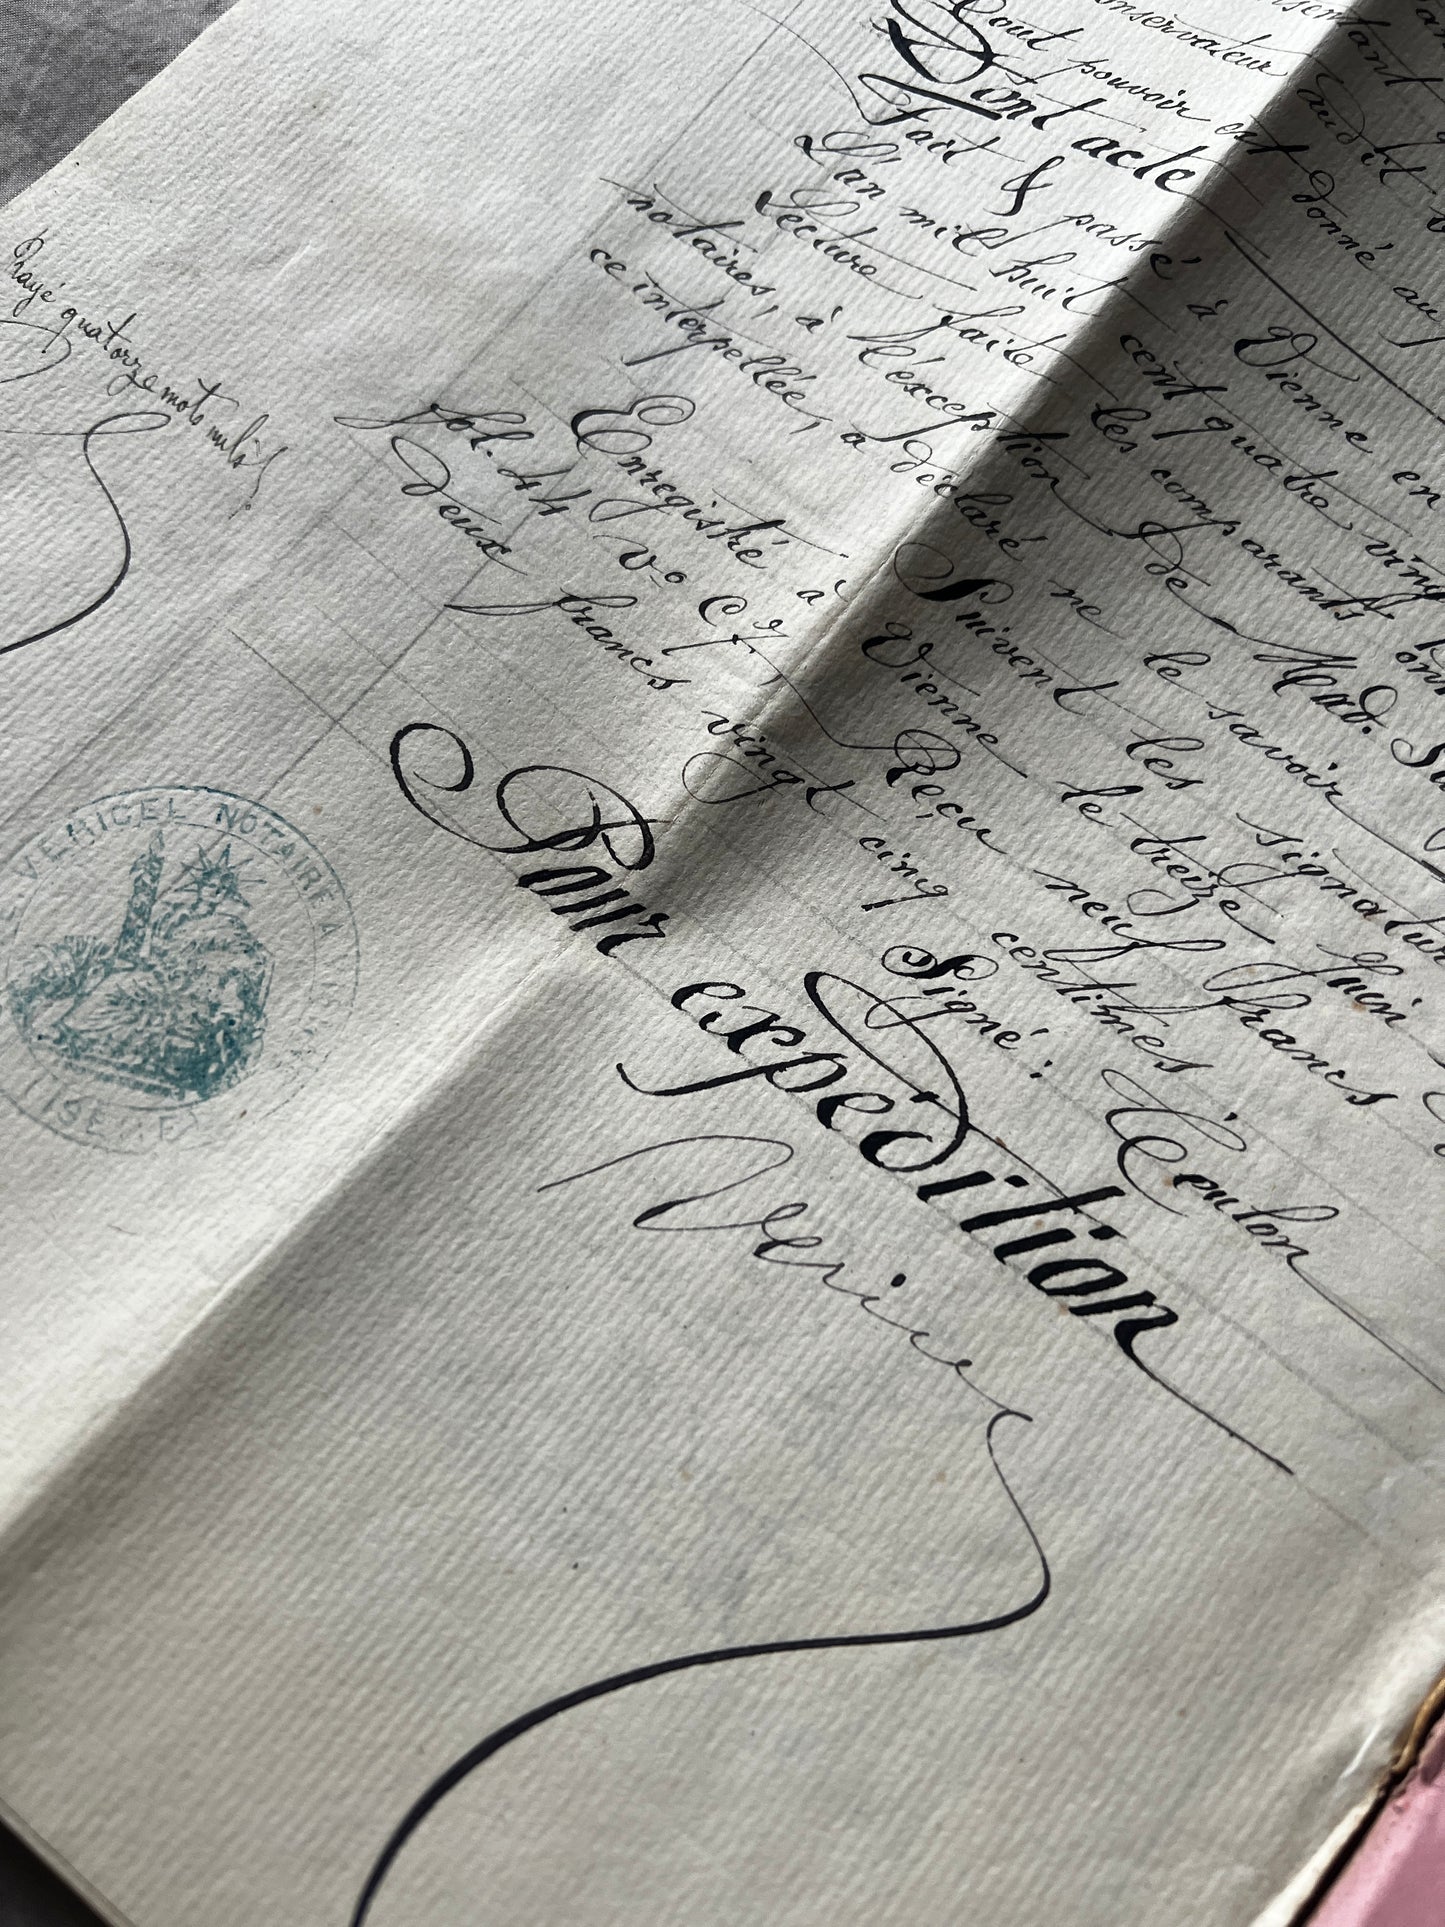 conservateur
Tout pouvoir est donné au
Dont acte
Fait & passé à Vienne en
L'an mil huit cent quatre vingt
Lecture faite les comparants ont
notaires, à l'exception de Mad.
ce interpellée, a déclaré ne le savoir
Suivent les signatures
Enregistré à Vienne le treize Juin
fol. 44 Vº C. 7. Reçu neuf francs
deux francs vingt cinq centimes
Signé: Coulon
Pour expédition
Rayé quatorze mots nuls
VERICEL NOTAIRE A
ISERE